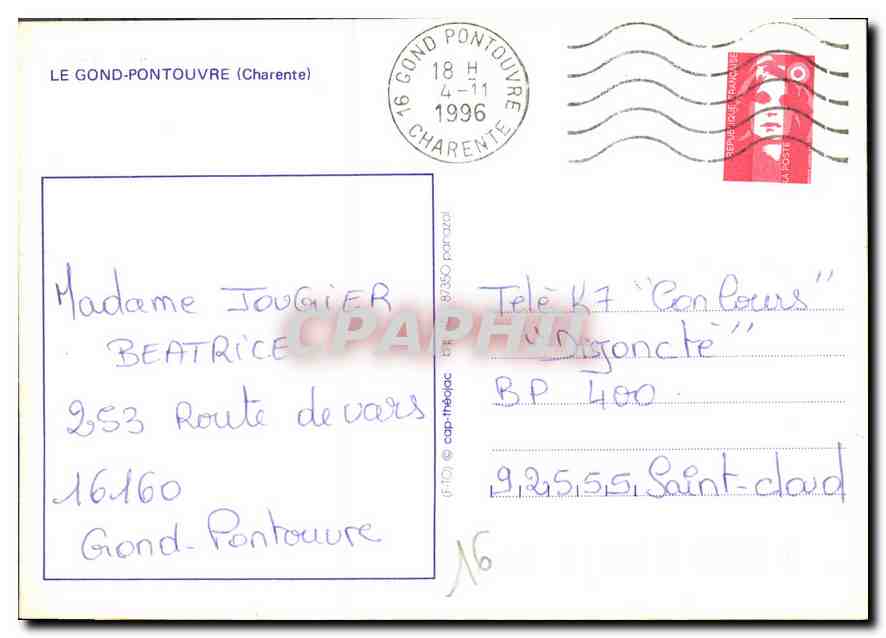 LE GOND-PONTOUVRE (Charente)
16 GOND PONTOUVRE
18 H
4-11
1996
CHARENTE
REPUBLIQUE FRANÇAISE
LA POSTE
Madame JOUGIER
BEATRICE
253 Route de vars
16160
Gond-Pontouvre
(F-TO) © cap-théojac
87350 panazol
CPAPHIL
Télé K7 "Concours"
"Disjoncté"
BP 400
92555 Saint-cloud
16